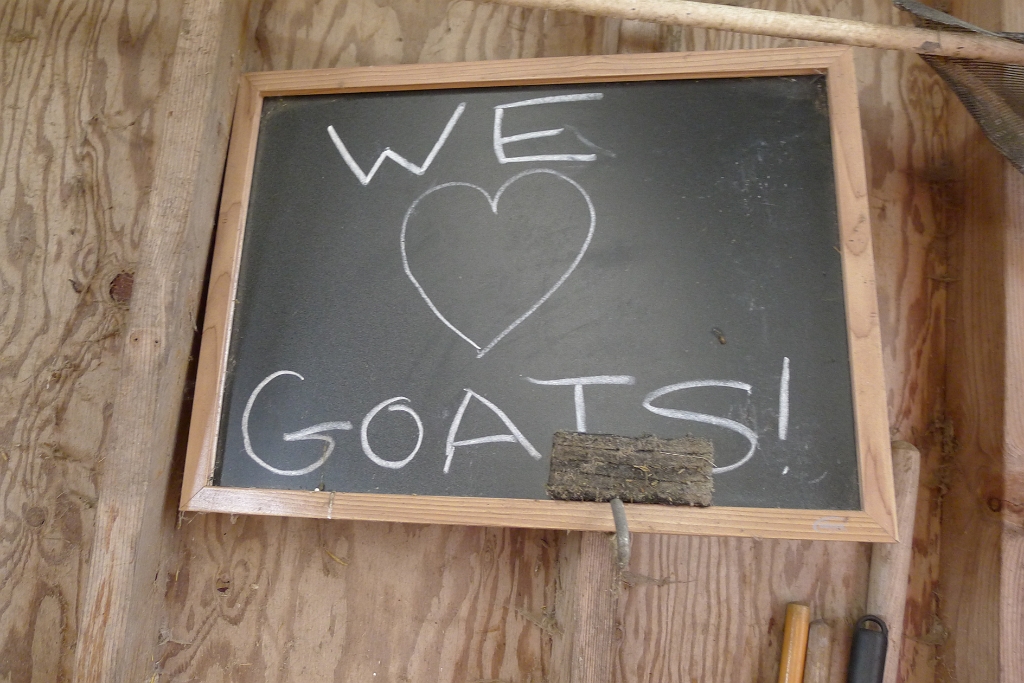 WE
♥
GOATS!